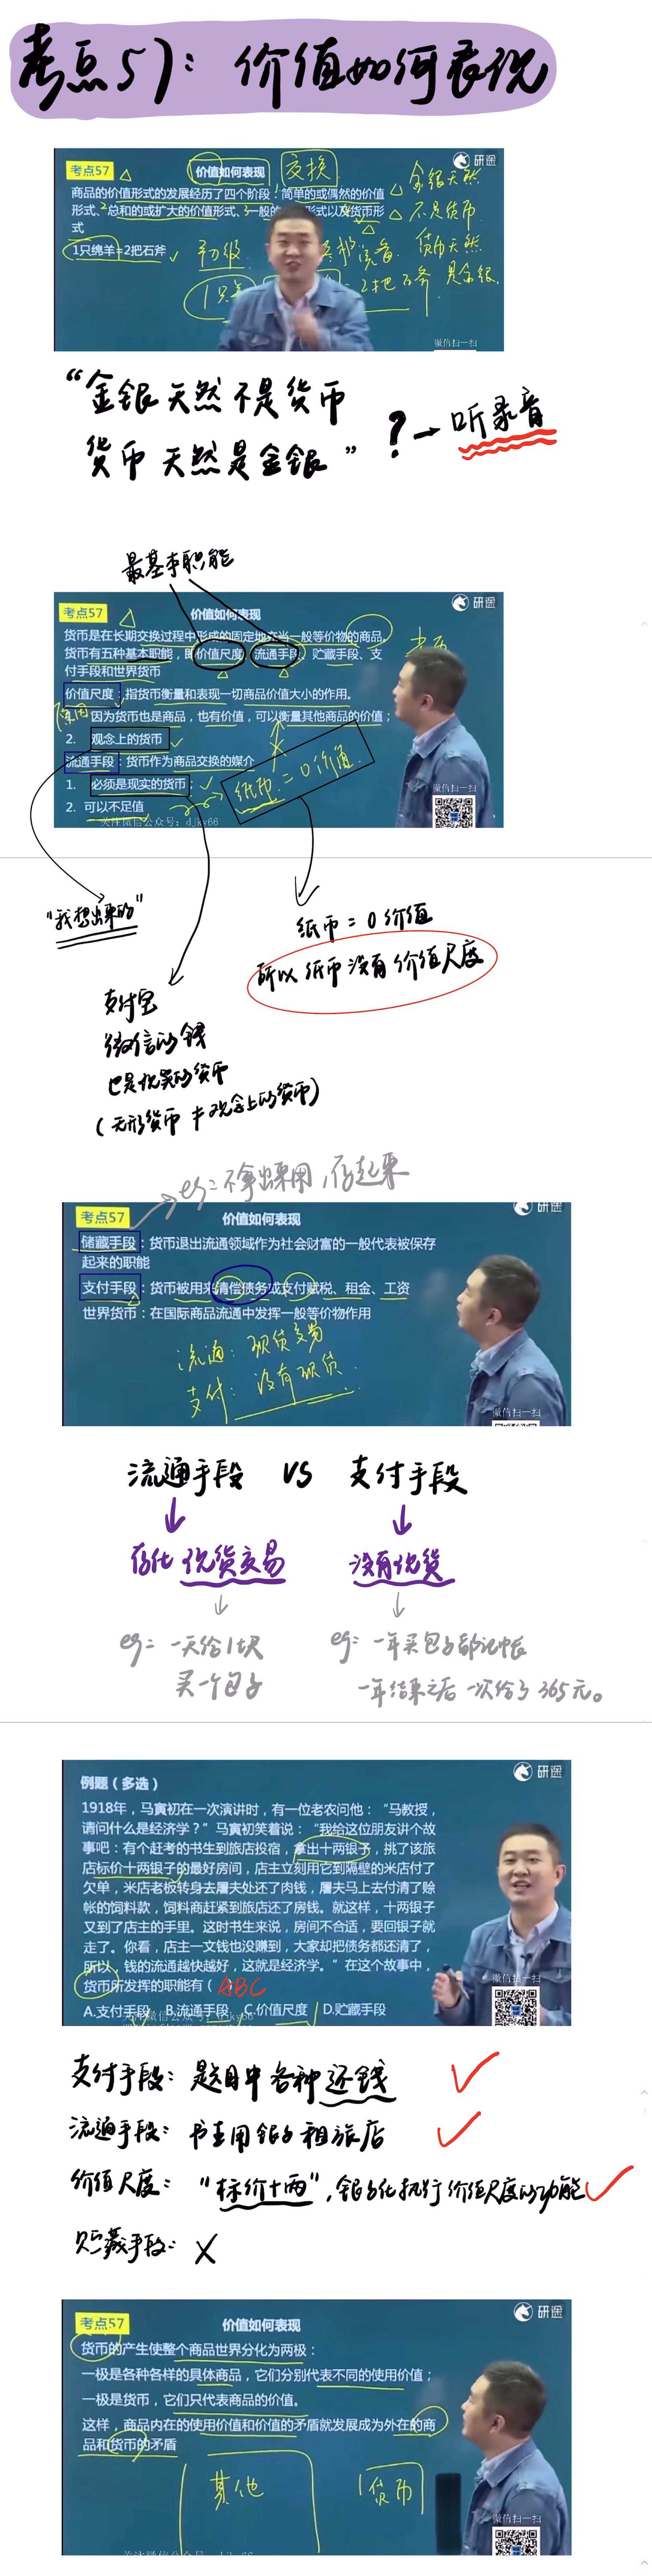 考点57：价值如何表现
研途
考点57
价值如何表现
交换
商品的价值形式的发展经历了四个阶段：简单的或偶然的价值
形式、总和的或扩大的价值形式、一般的
形式以及货币形
式
1只绵羊=2把石斧
初级
金银天然
不是货币
货币天然
是金银
微信扫一扫
“金银天然不是货币
货币天然是金银”
？→听录音
最基本职能
研途
考点57
价值如何表现
货币是在长期交换过程中形成的固定地充当一般等价物的商品。
货币有五种基本职能，即价值尺度、流通手段、贮藏手段、支
付手段和世界货币
价值尺度：指货币衡量和表现一切商品价值大小的作用。
原因
1. 因为货币也是商品，也有价值，可以衡量其他商品的价值；
2. 观念上的货币
流通手段：货币作为商品交换的媒介
1. 必须是现实的货币；
2. 可以不足值
纸币=0价值
微信扫一扫
关注微信公众号：djky66
“我想出来的”
纸币=0价值
所以纸币没有价值尺度
支付宝
微信的钱
也是现实的货币
（无形货币≠观念上的货币）
eg=不拿出来用，存起来
研途
考点57
价值如何表现
储藏手段：货币退出流通领域作为社会财富的一般代表被保存
起来的职能
支付手段：货币被用来清偿债务或支付赋税、租金、工资
世界货币：在国际商品流通中发挥一般等价物作用
流通：现货交易
支付：没有现货.
微信扫一扫
流通手段 VS 支付手段
存化现货交易
没有现货
eg= 一天给1块
买一个包子
eg: 一年买包子都记中长
一年结束之后一次给了365元。
研途
例题（多选）
1918年，马寅初在一次演讲时，有一位老农问他：“马教授，
请问什么是经济学？”马寅初笑着说：“我给这位朋友讲个故
事吧：有个赶考的书生到旅店投宿，拿出十两银子，挑了该旅
店标价十两银子的最好房间，店主立刻用它到隔壁的米店付了
欠单，米店老板转身去屠夫处还了肉钱，屠夫马上去付清了赊
帐的饲料款，饲料商赶紧到旅店还了房钱。就这样，十两银子
又到了店主的手里。这时书生来说，房间不合适，要回银子就
走了。你看，店主一文钱也没赚到，大家却把债务都还清了，
所以，钱的流通越快越好，这就是经济学。”在这个故事中，
货币所发挥的职能有（ ABC
A.支付手段 B.流通手段 C.价值尺度 D.贮藏手段
微信扫一扫
支付手段：题目中各种还钱
流通手段：书生用银子租旅店
价值尺度：“标价十两”，银子化执行价值尺度的功能
贮藏手段：X
研途
考点57
价值如何表现
货币的产生使整个商品世界分化为两极：
一极是各种各样的具体商品，它们分别代表不同的使用价值；
一极是货币，它们只代表商品的价值。
这样，商品内在的使用价值和价值的矛盾就发展成为外在的商
品和货币的矛盾
其他
货币
微信扫一扫